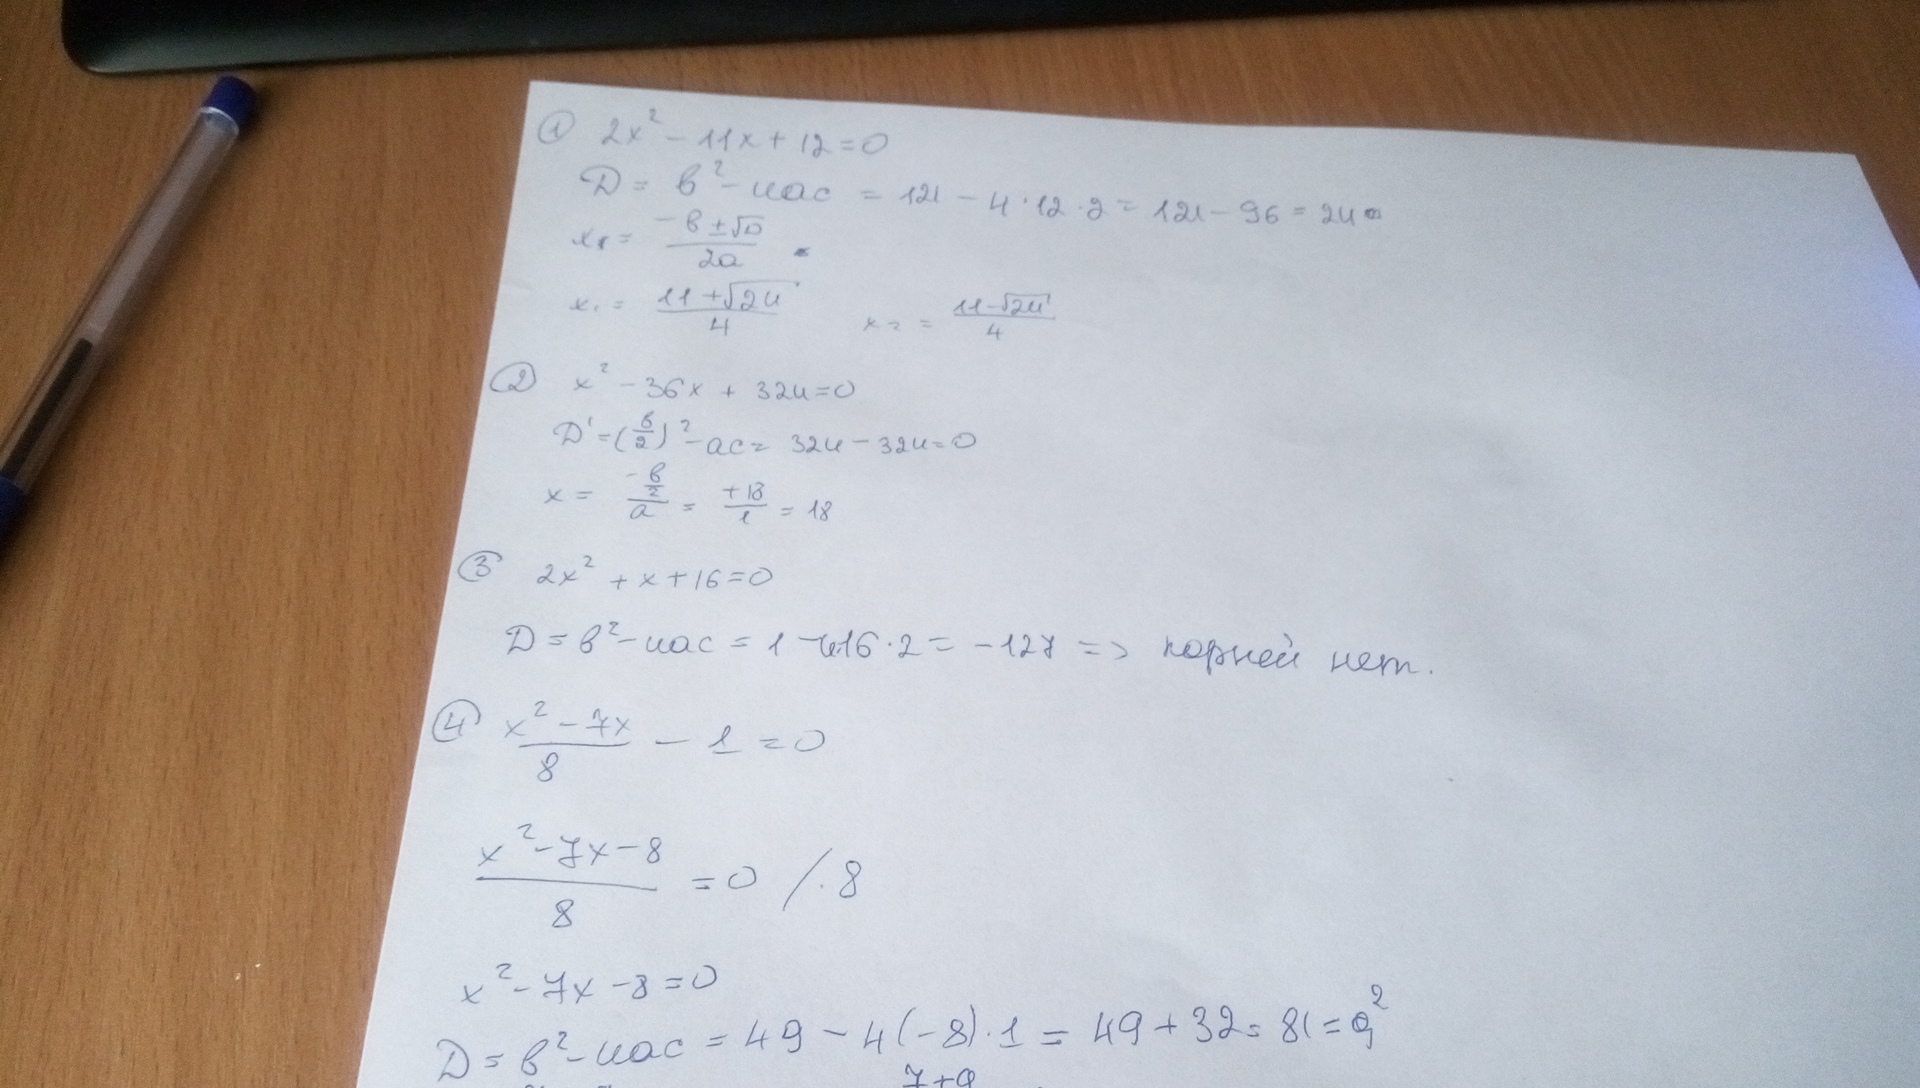 ① 2x² - 11x + 12 = 0
D = b² - 4ac = 121 - 4·12·2 = 121 - 96 = 24
x₁ = (-b ± √D)/2a
x₁ = (11 + √24)/4   x₂ = (11 - √24)/4
② x² - 36x + 324 = 0
D' = (b/2)² - ac = 324 - 324 = 0
x = (-b/2)/a = +18/1 = 18
③ 2x² + x + 16 = 0
D = b² - 4ac = 1 - 4·16·2 = -127 => корней нет.
④ (x² - 7x)/8 - 1 = 0
(x² - 7x - 8)/8 = 0 /·8
x² - 7x - 8 = 0
D = b² - 4ac = 49 - 4(-8)·1 = 49 + 32 = 81 = 9²
7+9